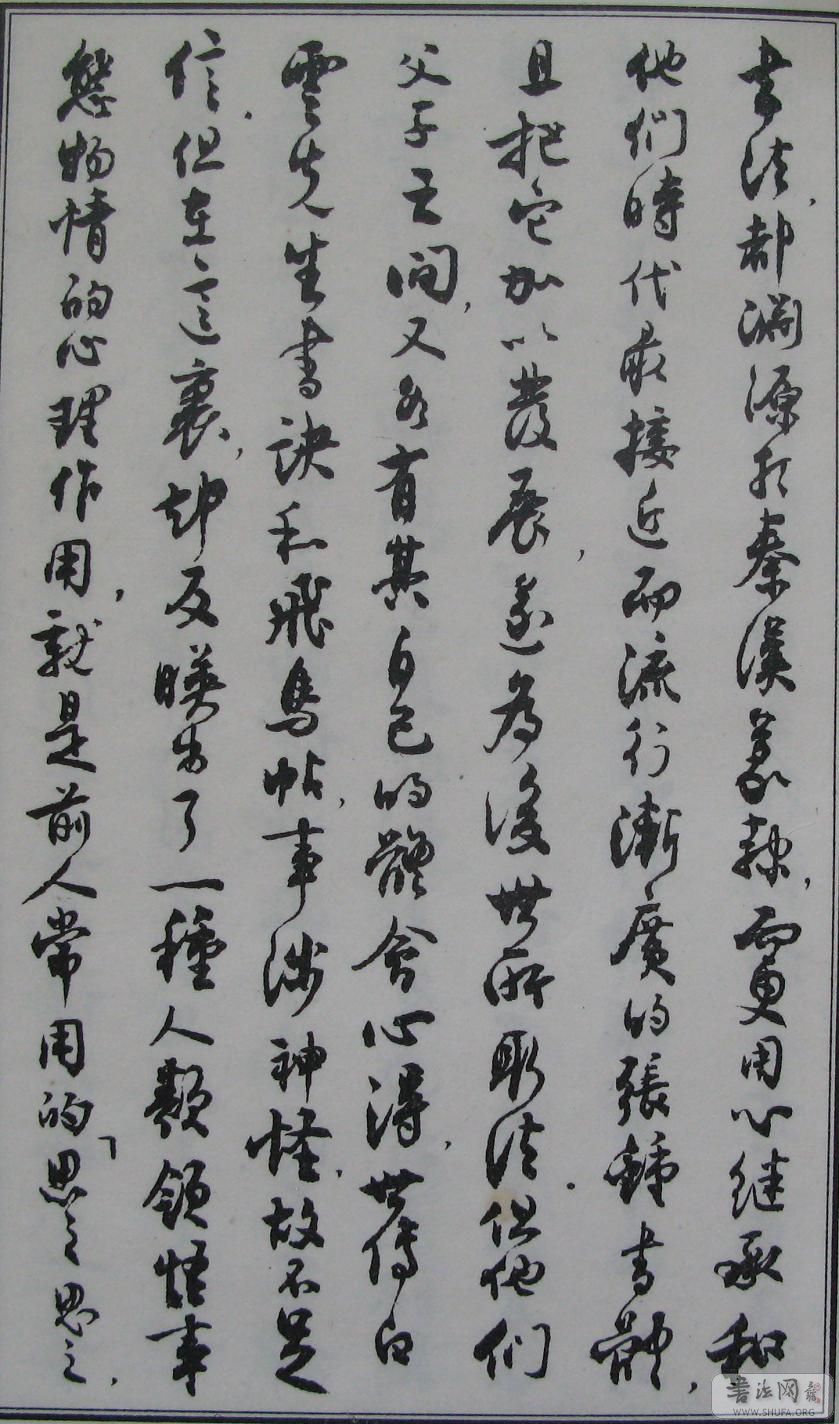 書法，都淵源於秦漢篆隸，而更用心繼承和
他們時代最接近而流行漸廣的張鍾書體，
且把它加以發展，遂為後世所取法。但他們
父子之間，又各有其自己的體會心得，世傳白
雲先生書訣和飛鳥帖，事涉神怪，故不足
信，但在這裏，却反映出了一種人類領悟事
態物情的心理作用，就是前人常用的「思之思之，
書法网
WWW.SHUFA.ORG